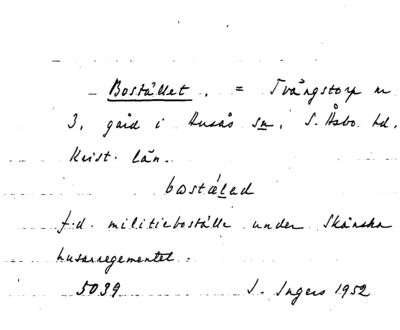 Bostället, = Tvångstorp nr
3, gård i Ausås sn, S. Åsbo hd.
Krist. län.
bostæled
f.d. militieboställe under Skånska
husarregementet.
5039 I. Ingers 1952